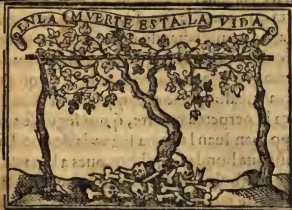 EN LA MVERTE ESTA. LA VIDA